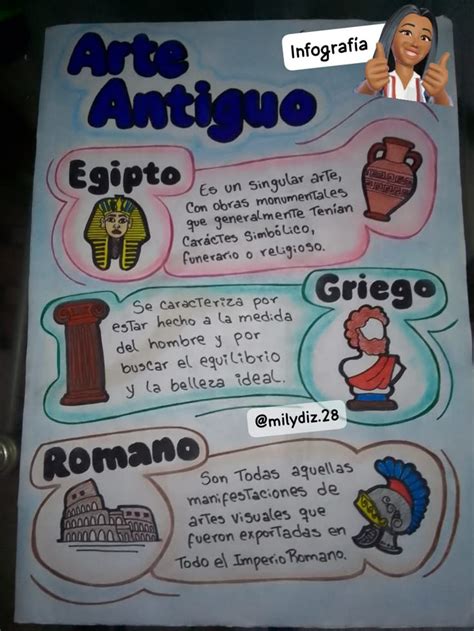 Infografía
Arte
Antiguo
Egipto
Es un singular arte,
con obras monumentales
que generalmente Tenían
Caráctes Simbólico,
funerario o religioso.
Griego
Se caracteriza por
estar hecho a la medida
del hombre y por
buscar el equilibrio
y la belleza ideal.
@milydiz.28
Romano
Son Todas aquellas
manifestaciones de
artes visuales que
fueron exportadas en
Todo el Imperio Romano.